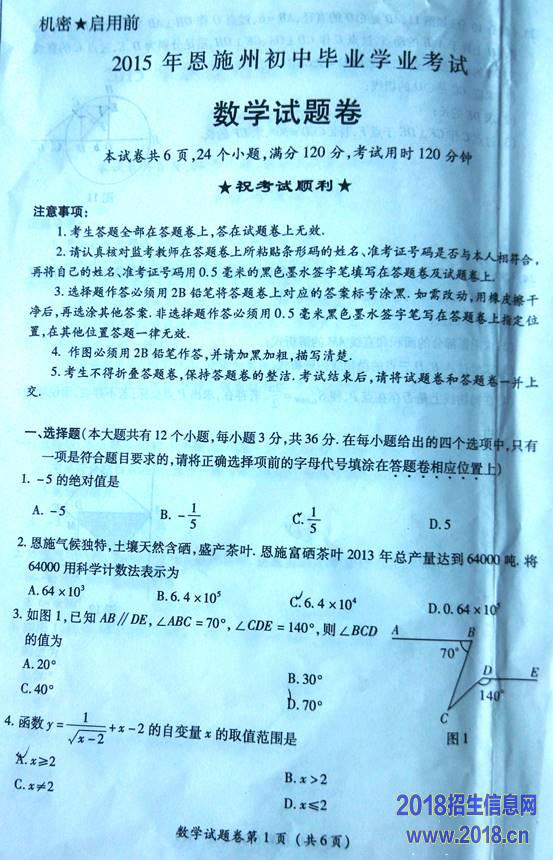 机密★启用前
2015 年恩施州初中毕业学业考试
数学试题卷
本试卷共 6 页,24 个小题,满分 120 分,考试用时 120 分钟
★祝考试顺利★
注意事项:
1. 考生答题全部在答题卷上,答在试题卷上无效.
2. 请认真核对监考教师在答题卷上所粘贴条形码的姓名、准考证号码是否与本人相符合,
再将自己的姓名、准考证号码用 0.5 毫米的黑色墨水签字笔填写在答题卷及试题卷上.
3. 选择题作答必须用 2B 铅笔将答题卷上对应的答案标号涂黑. 如需改动,用橡皮擦干
净后,再选涂其他答案. 非选择题作答必须用 0.5 毫米黑色墨水签字笔写在答题卷上指定位
置,在其他位置答题一律无效.
4. 作图必须用 2B 铅笔作答,并请加黑加粗,描写清楚.
5. 考生不得折叠答题卷,保持答题卷的整洁. 考试结束后,请将试题卷和答题卷一并上
交.
一、选择题(本大题共有 12 个小题,每小题 3 分,共 36 分. 在每小题给出的四个选项中,只有
一项是符合题目要求的,请将正确选项前的字母代号填涂在答题卷相应位置上)
1. -5 的绝对值是
A. -5 B. -1/5 C. 1/5 D. 5
2. 恩施气候独特,土壤天然含硒,盛产茶叶. 恩施富硒茶叶 2013 年总产量达到 64000 吨. 将
64000 用科学计数法表示为
A. 64 × 10³ B. 6. 4 × 10⁵ C. 6. 4 × 10⁴ D. 0. 64 × 10⁵
3. 如图 1,已知 AB∥DE,∠ABC = 70°,∠CDE = 140°,则 ∠BCD
的值为
A. 20° B. 30°
C. 40° D. 70°
A B
70°
D E
140°
C
图 1
4. 函数 y = 1/√(x-2) + x - 2 的自变量 x 的取值范围是
A. x≥2 B. x > 2
C. x≠2 D. x≤2
数学试题卷第 1 页 (共 6 页)
2018招生信息网
www.2018.cn